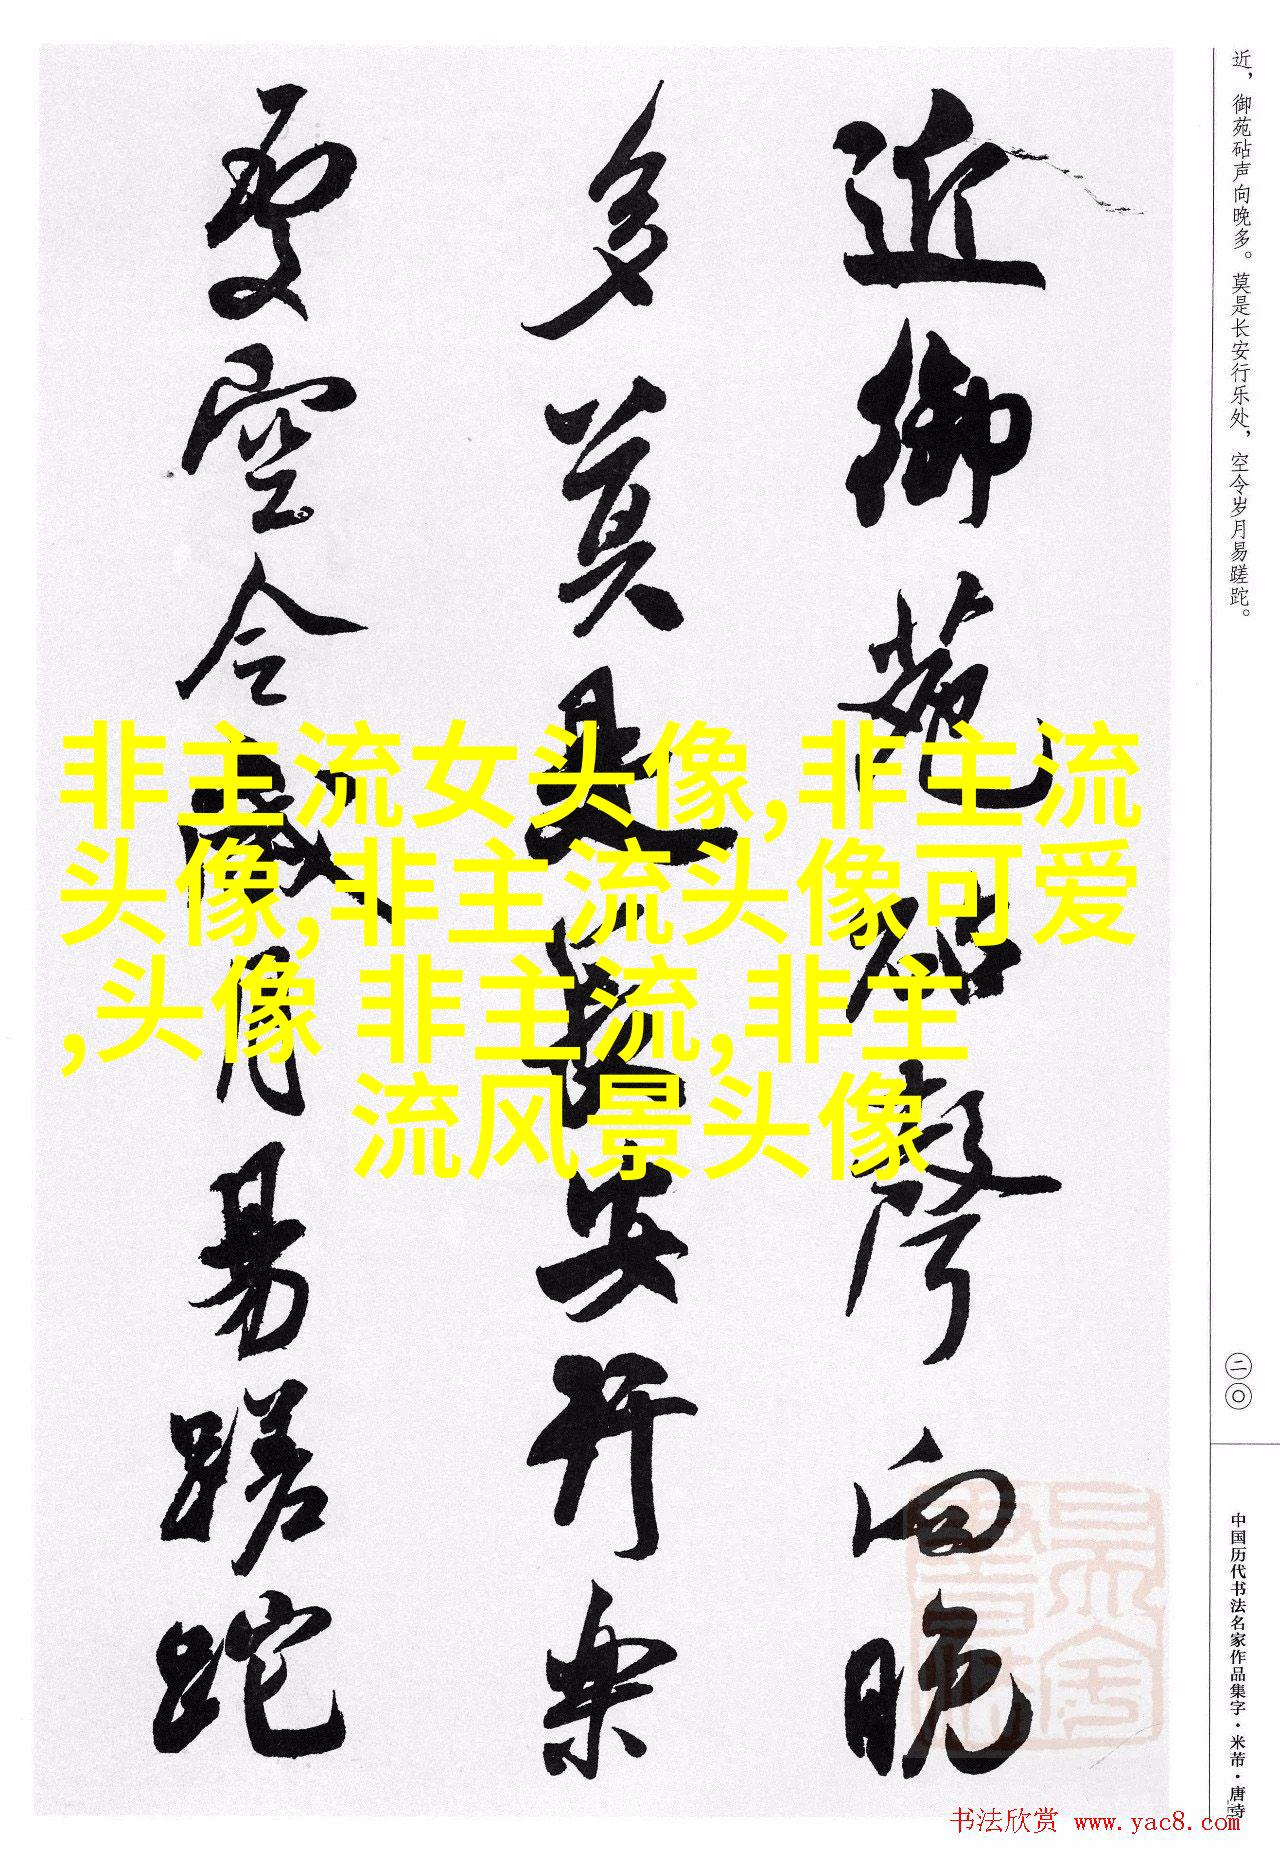 近御苑砧聲向晚
多莫是長安行樂
處空令歲月易蹉跎
近，御苑砧声向晚多。莫是长安行乐处，空令岁月易蹉跎。
二〇
中国历代书法名家作品集字·米芾·唐诗
非主流女头像,非主流
头像,非主流头像可爱
,头像 非主流,非主
流风景头像
书法欣赏 www.yac8.com